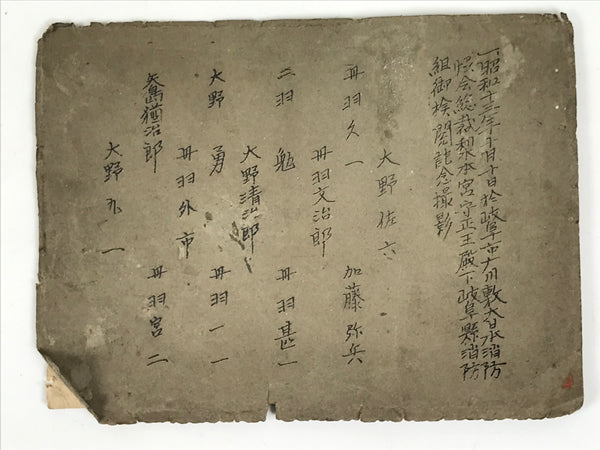 一昭和十三年十月十日於岐阜市大日本消防
協会総裁梨本宮守正王殿下岐阜縣消防
組御検閲記念撮影
大野佐六 加藤弥兵
丹羽久一 丹羽文治郎 丹羽甚一
二羽勉 大野清治郎 丹羽一一
大野勇 丹羽外市 丹羽宮二
矢島猶治郎 大野九一